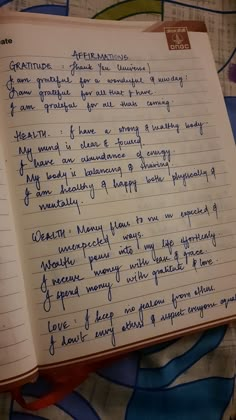 ate
ongc
AFFIRMATIONS
GRATITUDE : Thank you Universe!
I am grateful for a wonderful & new day!
I am grateful for all that I have.
I am grateful for all thats coming.
HEALTH : I have a strong & healthy body.
My mind is clear & focused.
I have an abundance of energy.
My body is balancing & thriving
I am healthy & happy both physically &
mentally.
WEALTH : Money flows to me in expected &
unexpected ways.
Wealth pours into my life effortlessly
I receive money with ease & grace.
I spend money with gratitude & love.
LOVE : I keep no jealous from other.
I don't envy others & respect everyone equal